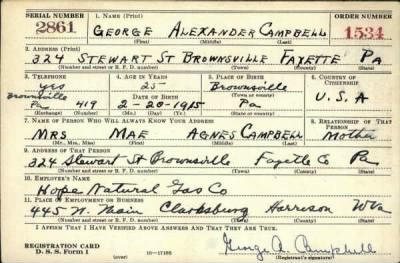 SERIAL NUMBER 1. Name (Print) ORDER NUMBER
2861 GEORGE ALEXANDER CAMPBELL 1534
(First) (Middle) (Last)
2. Address (Print)
324 STEWART ST BROWNSVILLE FAYETTE PA
(Number and street or R. F. D. number) (Town) (County) (State)
3. Telephone 4. Age in Years 5. Place of Birth 6. Country of Citizenship
yes 25 Brownsville
Brownsville Date of Birth (Town or county) U.S.A
Pa 419 2-20-1915 Pa
(Exchange) (Number) (Mo.) (Day) (Yr.) (State or country)
7. Name of Person Who Will Always Know Your Address 8. Relationship of That Person
Mrs Mae Agnes Campbell Mother
(Mr., Mrs., Miss) (First) (Middle) (Last)
9. Address of That Person
324 Stewart St Brownsville Fayette Co Pa
(Number and street or R. F. D. number) (Town) (County) (State)
10. Employer's Name
Hope Natural Gas Co
11. Place of Employment or Business
445 W. Main Clarksburg Harrison W Va
(Number and street or R. F. D. number) (Town) (County) (State)
I Affirm That I Have Verified Above Answers and That They Are True.
REGISTRATION CARD
D. S. S. Form 1 (over) 16—17105 George A. Campbell
(Registrant's signature)